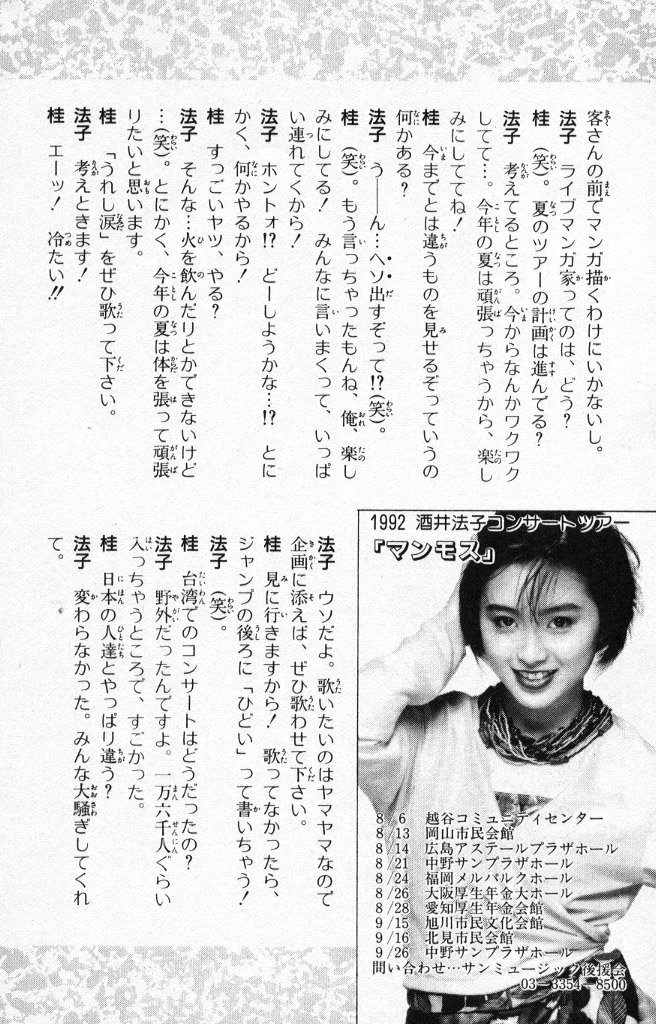 客さんの前でマンガ描くわけにいかないし。
法子　ライブマンガ家ってのは、どう?
桂　(笑)。夏のツアーの計画は進んでる?
法子　考えてるところ。今からなんかワクワク
してて…。今年の夏は頑張っちゃうから、楽し
みにしててね!
桂　今までとは違うものを見せるぞっていうの
何かある?
法子　う——ん…ヘソ出すぞって!?(笑)。
桂　(笑)。もう言っちゃったもんね、俺、楽し
みにしてる!　みんなに言いまくって、いっぱ
い連れてくから!
法子　ホントォ!?　どーしようかな…!?　とに
かく、何かやるから!
桂　すっごいヤツ、やる?
法子　そんな…火を飲んだりとかできないけど
…(笑)。とにかく、今年の夏は体を張って頑張
りたいと思います。
桂　「うれし涙」をぜひ歌って下さい。
法子　考えときます!
桂　エーッ!　冷たい!!
法子　ウソだよ。歌いたいのはヤマヤマなので
企画に添えば、ぜひ歌わせて下さい。
桂　見に行きますから!　歌ってなかったら、
ジャンプの後ろに「ひどい」って書いちゃう!
法子　(笑)。
桂　台湾でのコンサートはどうだったの?
法子　野外だったんですよ。一万六千人ぐらい
入っちゃうところで、すごかった。
桂　日本の人達とやっぱり違う?
法子　変わらなかった。みんな大騒ぎしてくれ
て。
1992 酒井法子コンサートツアー
『マンモス』
8/6　越谷コミュニティセンター
8/13　岡山市民会館
8/14　広島アステールプラザホール
8/21　中野サンプラザホール
8/24　福岡メルパルクホール
8/26　大阪厚生年金大ホール
8/28　愛知厚生年金会館
9/15　旭川市民文化会館
9/16　北見市民会館
9/26　中野サンプラザホール
問い合わせ…サンミュージック後援会
03—3354—8500